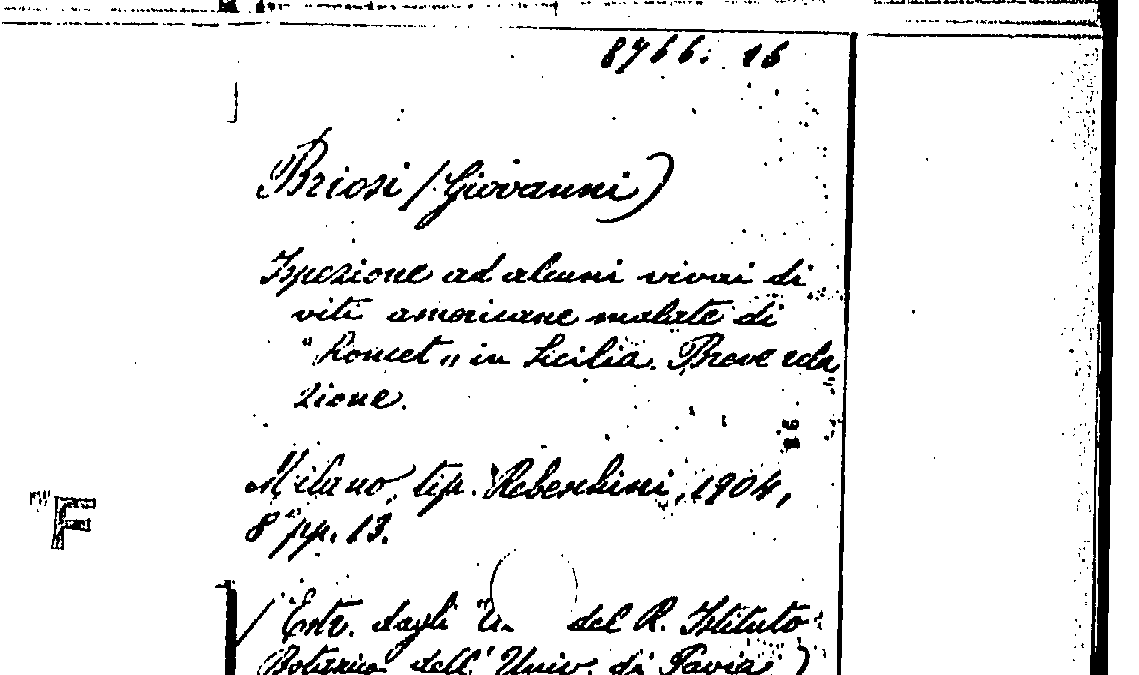 8766. 16
Briosi (Giovanni)
Ispezione ad alcuni vivai di
viti americane malate di
"Roncet" in Sicilia. Breve rela
zione.
Milano, tip. Rebeschini, 1904,
8° pp. 13.
F
(Estr. dagli del R. Istituto
Botanico dell'Univ. di Pavia)